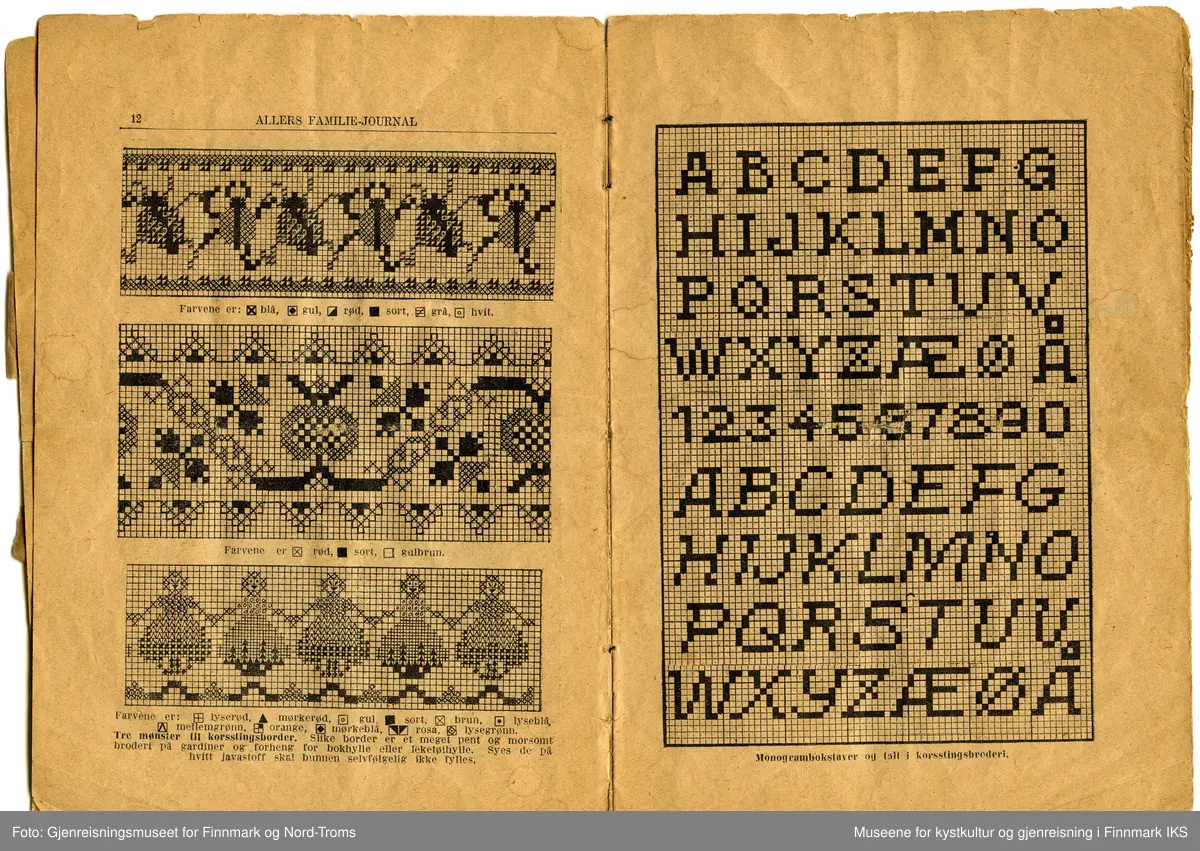 12 ALLERS FAMILIE-JOURNAL
Farvene er: blå, gul, rød, sort, grå, hvit.
Farvene er rød, sort, gulbrun.
Farvene er: lyserød, mørkerød, gul, sort, brun, lyseblå,
mellemgrønn, orange, mørkeblå, rosa, lysegrønn.
Tre mønster til korsstingsborder. Slike border er et meget pent og morsomt
broderi på gardiner og forheng for bokhylle eller leketøihylle. Syes de på
hvitt javastoff skal bunnen selvfølgelig ikke fylles.
ABCDEFG
HIJKLMNO
PQRSTUV
WXYZÆØÅ
1234567890
ABCDEFG
HIJKLMNO
PQRSTUV
WXYZÆØÅ
Monogrambokstaver og tall i korsstingsbroderi.
Foto: Gjenreisningsmuseet for Finnmark og Nord-Troms
Museene for kystkultur og gjenreisning i Finnmark IKS